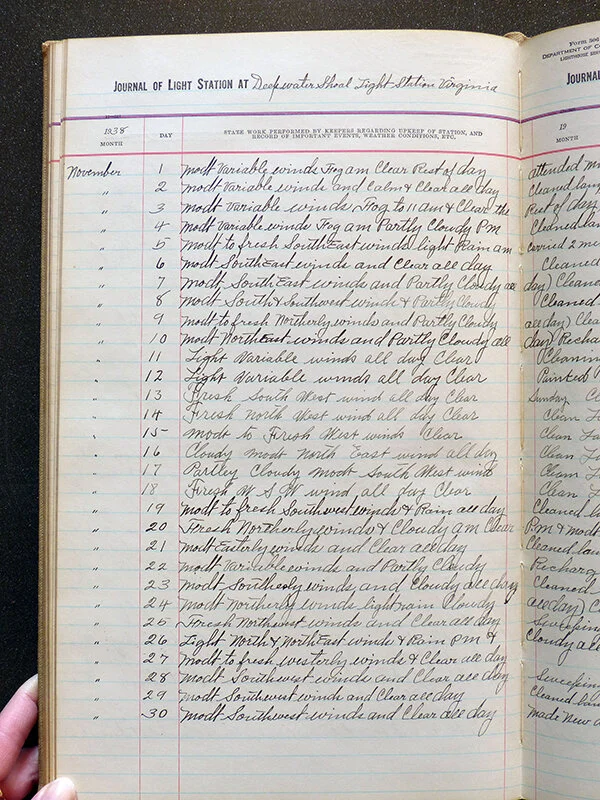 JOURNAL OF LIGHT STATION AT Deepwater Shoal Light Station Virginia
1938
MONTH
DAY
STATE WORK PERFORMED BY KEEPERS REGARDING UPKEEP OF STATION, AND
RECORD OF IMPORTANT EVENTS, WEATHER CONDITIONS, ETC.
November 1 Modt Variable winds Fog am Clear Rest of day
" 2 Modt Variable winds and Calm & Clear all day
" 3 Modt Variable winds, Fog to 11 am & Clear the
" 4 Modt Variable winds Fog am Partly Cloudy P.M.
" 5 Modt to fresh SouthEast winds light Rain am
" 6 Modt SouthEast winds and Clear all day
" 7 Modt SouthEast winds and Partly Cloudy all
" 8 Modt South & Southwest winds & Partly Cloudy
" 9 Modt to fresh Northerly winds and Partly Cloudy
" 10 Modt NorthEast winds and Partly Clowdy all
" 11 Light Variable winds all day Clear
" 12 Light Variable winds all day Clear
" 13 Fresh South West wind all day Clear
" 14 Fresh North West wind all day Clear
" 15 Modt to Fresh West winds Clear
" 16 Cloudy modt North East wind all day
" 17 Partley Cloudy modt South West wind
" 18 Fresh W S W wind all day Clear
" 19 Modt to fresh Southwest winds & Rain all day
" 20 Fresh Northerly winds & Cloudy am Clear
" 21 Modt Easterly winds and Clear all day
" 22 Modt Variable winds and Partly Cloudy
" 23 Modt Southerly winds and Cloudy all day
" 24 Modt Northerly winds light rain Clowdy
" 25 Fresh Northwest winds and Clear all day
" 26 Light North & NorthEast winds & Rain PM &
" 27 Modt to fresh westerly winds & Clear all day
" 28 Modt Southwest winds and Clear all day
" 29 Modt Southwest winds and Clear all day
" 30 Modt Southwest winds and Clear all day
FORM 306
DEPARTMENT OF C
LIGHTHOUSE SER
JOURNAL
19
MONTH
attended
Cleaned lan
Rest of day
Cleaned lan
carried 2
Cleaned
day) Cleane
Cleaned
all day) Clea
day Rechar
Cleanin
Painted
Sunday
Clean La
Clean La
Clean La
Clean La
Clean L
Cleaned la
P.M & modt
Cleaned lan
Recharg
Cleaned
all day) C
Sweeping
Cloudy all
Sweeping
Cleaned lan
Made new